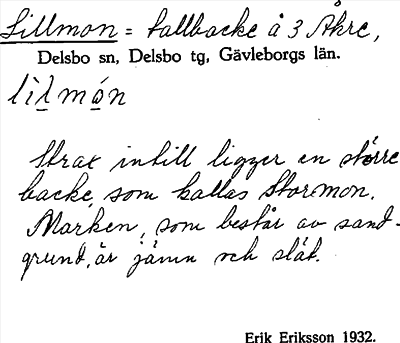 Lillmon = tallbacke å 3 Åkre,
Delsbo sn, Delsbo tg, Gävleborgs län.
lìlmón
Strax intill ligger en större
backe, som kallas Stormon.
Marken, som består av sand-
grund, är jämn och slät.
Erik Eriksson 1932.